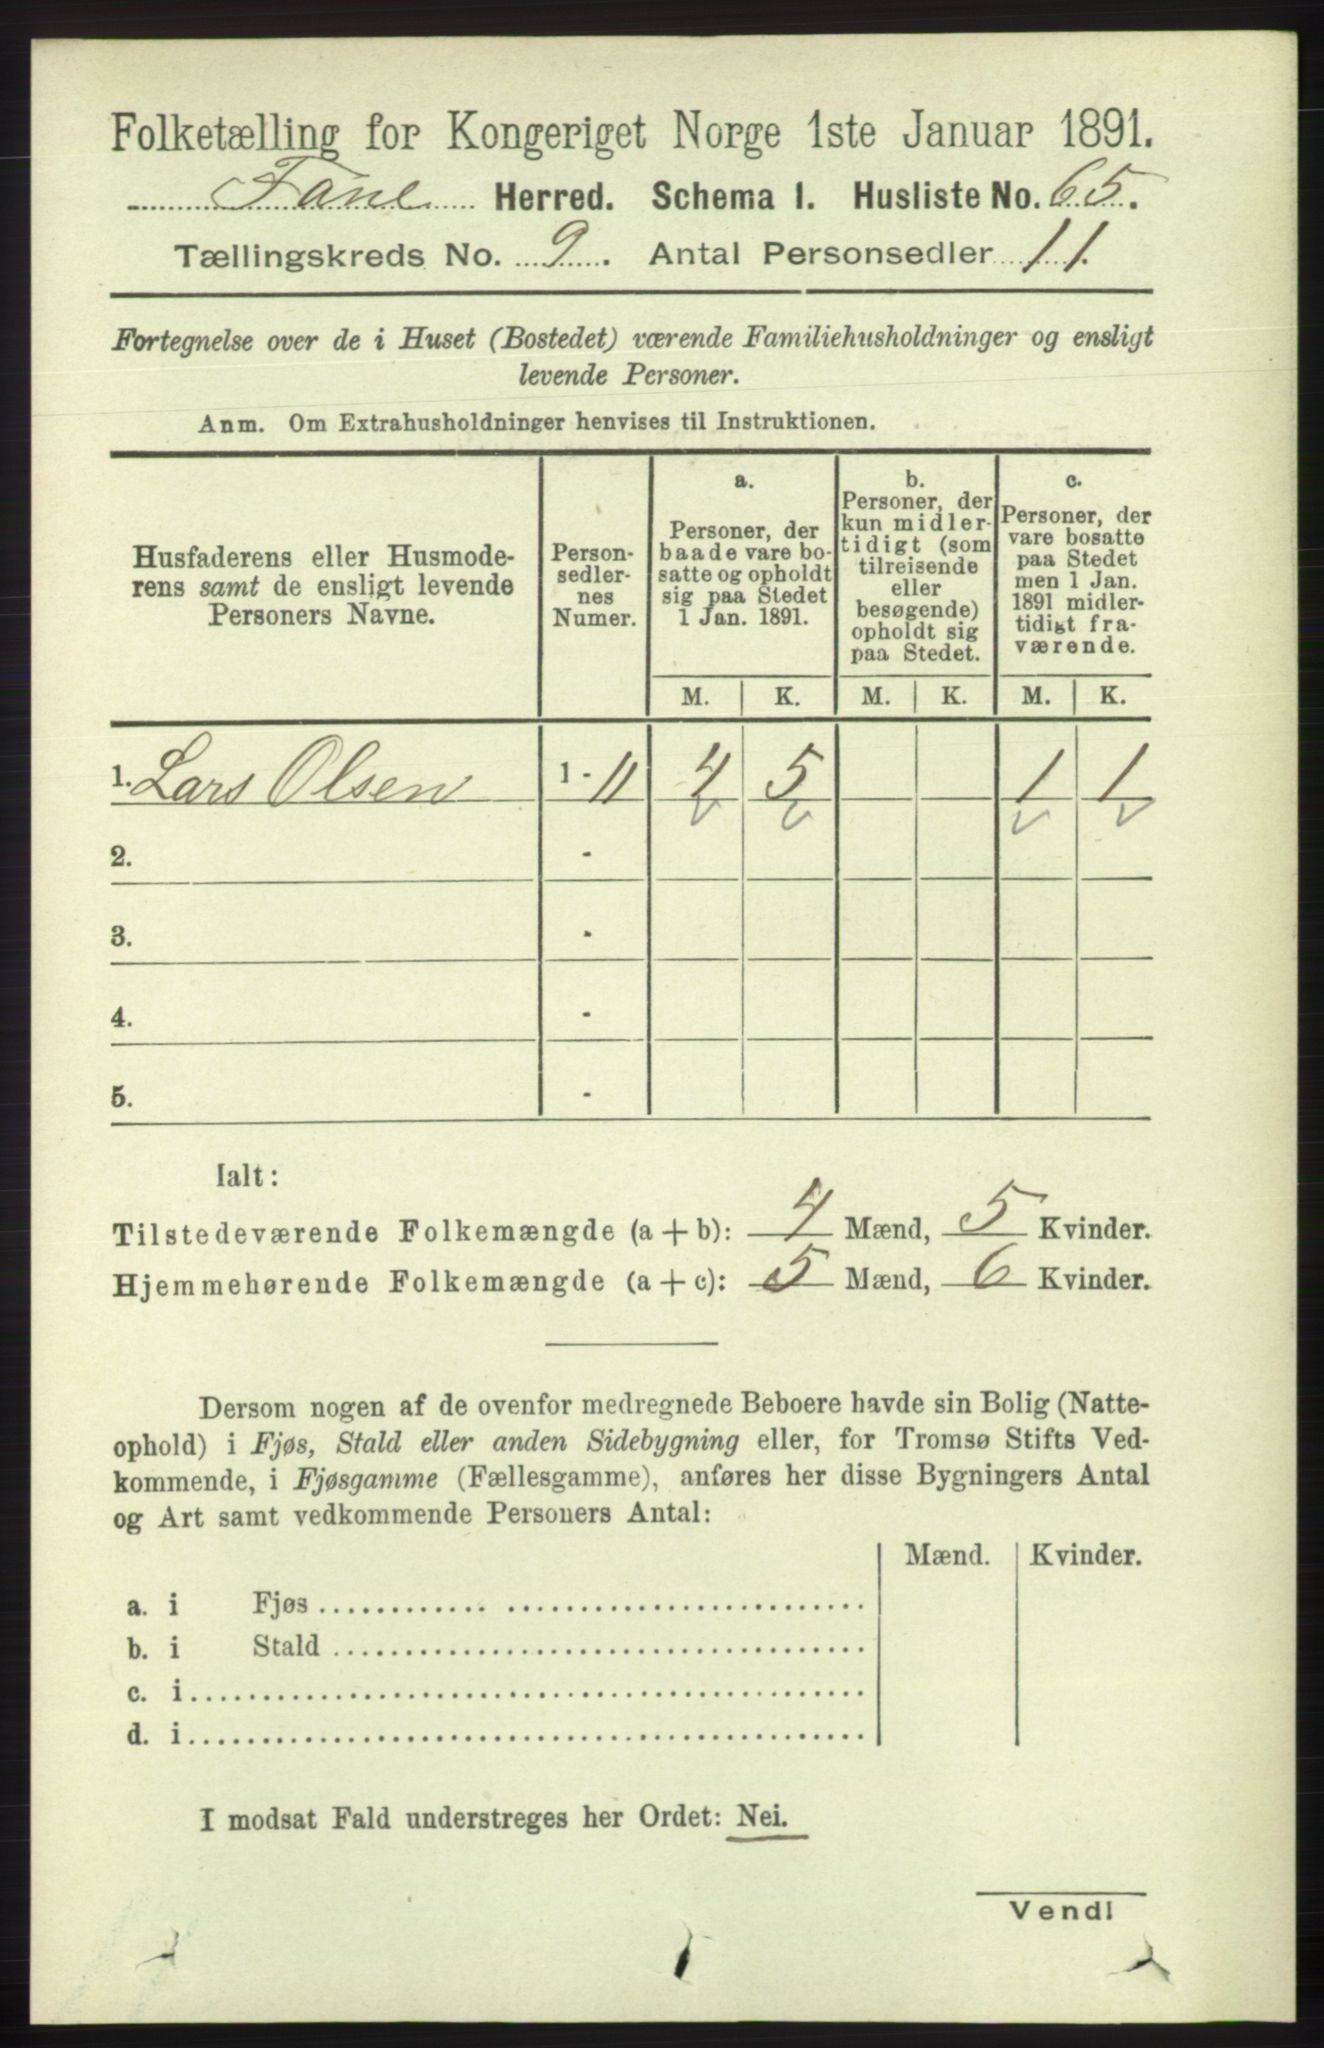 Folketælling for Kongeriget Norge 1ste Januar 1891.
Fane Herred. Schema I. Husliste No. 65.
Tællingskreds No. 9. Antal Personsedler 11.
Fortegnelse over de i Huset (Bostedet) værende Familiehusholdninger og ensligt
levende Personer.
Anm. Om Extrahusholdninger henvises til Instruktionen.
Husfaderens eller Husmode-
rens samt de ensligt levende
Personers Navne.
Person-
sedler-
nes
Numer.
a.
Personer, der
baade vare bo-
satte og opholdt
sig paa Stedet
1 Jan. 1891.
b.
Personer, der
kun midler-
tidigt (som
tilreisende
eller
besøgende)
opholdt sig
paa Stedet.
c.
Personer, der
vare bosatte
paa Stedet
men 1 Jan.
1891 midler-
tidigt fra-
værende.
M. K. M. K. M. K.
1. Lars Olsen 1 - 11 4 5 1 1
2. -
3. -
4. -
5. -
Ialt:
Tilstedeværende Folkemængde (a + b): 4 Mænd, 5 Kvinder.
Hjemmehørende Folkemængde (a + c): 5 Mænd, 6 Kvinder.
Dersom nogen af de ovenfor medregnede Beboere havde sin Bolig (Natte-
ophold) i Fjøs, Stald eller anden Sidebygning eller, for Tromsø Stifts Ved-
kommende, i Fjøsgamme (Fællesgamme), anføres her disse Bygningers Antal
og Art samt vedkommende Personers Antal:
Mænd. Kvinder.
a. i Fjøs
b. i Stald
c. i
d. i
I modsat Fald understreges her Ordet: Nei.
Vend!